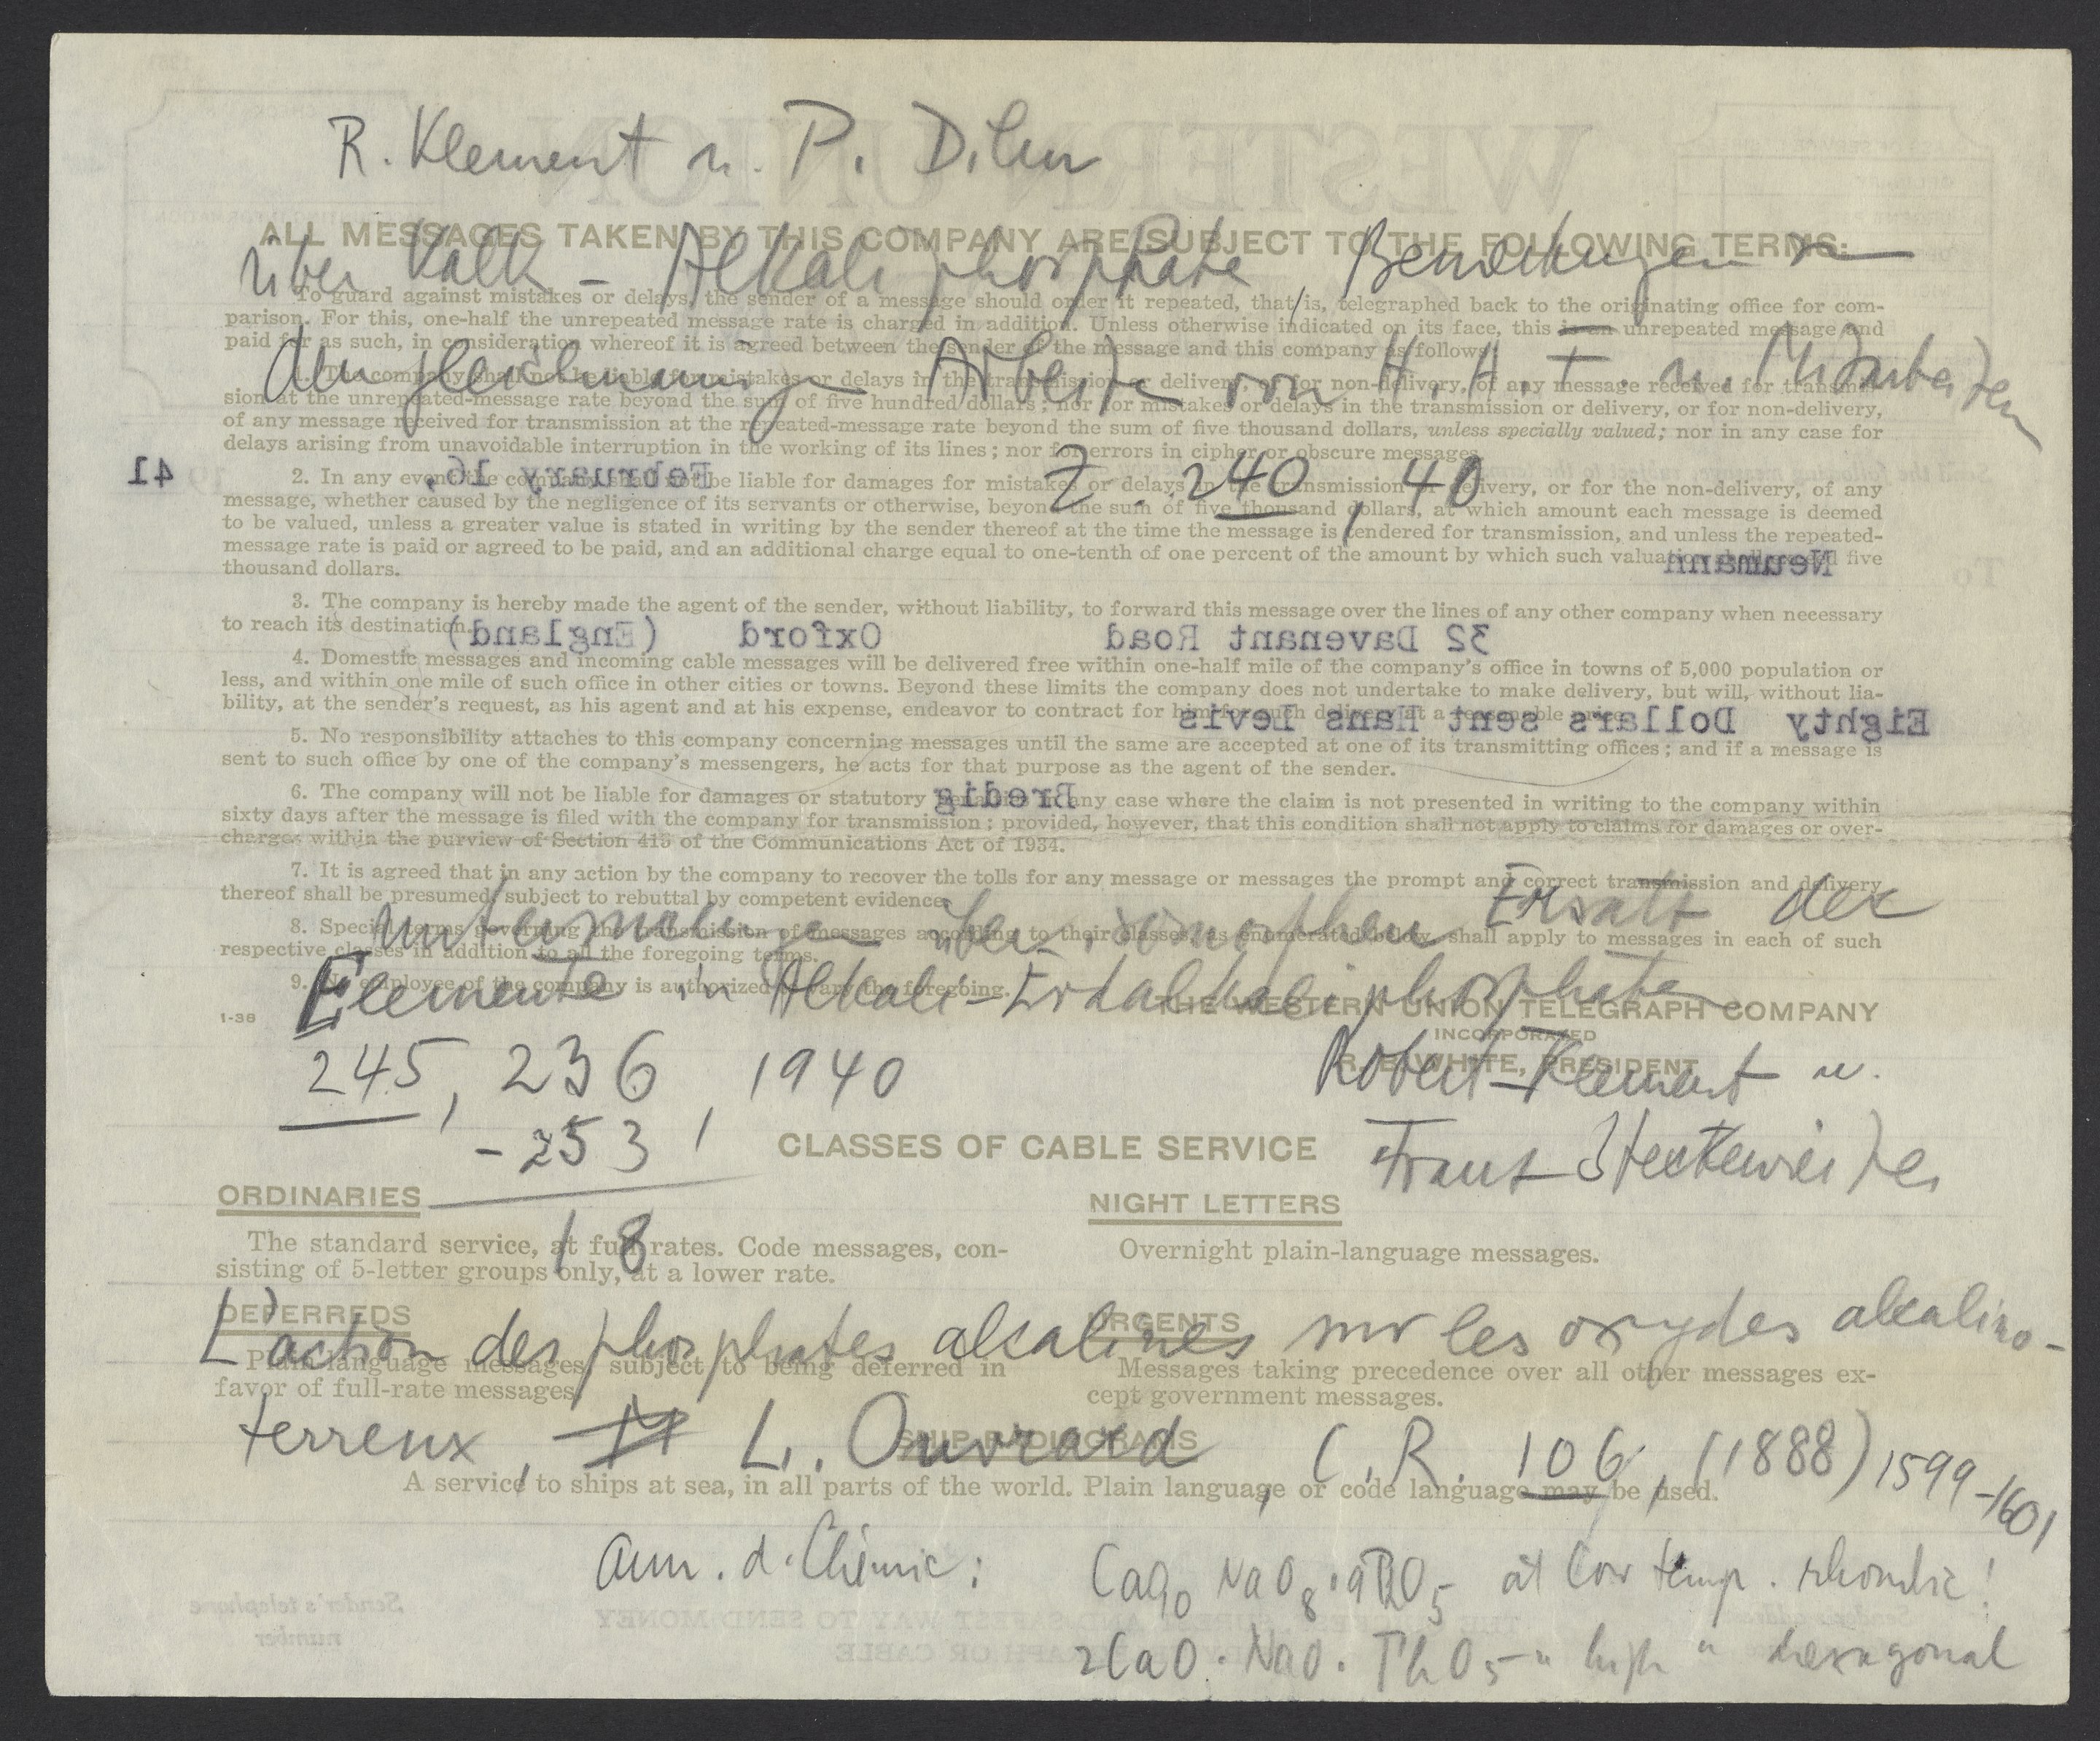 R. Klement u. P. Dihn
ALL MESSAGES TAKEN BY THIS COMPANY ARE SUBJECT TO THE FOLLOWING TERMS:
über Kalk - Alkali phosphate, Bemerkungen zu
To guard against mistakes or delays, the sender of a message should order it repeated, that is, telegraphed back to the originating office for com-
parison. For this, one-half the unrepeated message rate is charged in addition. Unless otherwise indicated on its face, this is an unrepeated message and
paid for as such, in consideration whereof it is agreed between the sender of the message and this company as follows:
den gleichnamigen Arbeiten von H. H. F. u. Mitarbeitern
1. The company shall not be liable for mistakes or delays in the transmission or delivery, or for non-delivery, of any message received for transmis-
sion at the unrepeated-message rate beyond the sum of five hundred dollars; nor for mistakes or delays in the transmission or delivery, or for non-delivery,
of any message received for transmission at the repeated-message rate beyond the sum of five thousand dollars, unless specially valued; nor in any case for
delays arising from unavoidable interruption in the working of its lines; nor for errors in cipher or obscure messages.
Z. .. 240, 40
February 16, 41
2. In any event the company shall not be liable for damages for mistakes or delays in the transmission or delivery, or for the non-delivery, of any
message, whether caused by the negligence of its servants or otherwise, beyond the sum of five thousand dollars, at which amount each message is deemed
to be valued, unless a greater value is stated in writing by the sender thereof at the time the message is tendered for transmission, and unless the repeated-
message rate is paid or agreed to be paid, and an additional charge equal to one-tenth of one percent of the amount by which such valuation shall exceed five
thousand dollars.
To Neumann
3. The company is hereby made the agent of the sender, without liability, to forward this message over the lines of any other company when necessary
to reach its destination.
32 Davenant Road Oxford (England)
4. Domestic messages and incoming cable messages will be delivered free within one-half mile of the company's office in towns of 5,000 population or
less, and within one mile of such office in other cities or towns. Beyond these limits the company does not undertake to make delivery, but will, without lia-
bility, at the sender's request, as his agent and at his expense, endeavor to contract for him for such delivery at a reasonable price.
Eighty Dollars sent Hans Levis
5. No responsibility attaches to this company concerning messages until the same are accepted at one of its transmitting offices; and if a message is
sent to such office by one of the company's messengers, he acts for that purpose as the agent of the sender.
Bredig
6. The company will not be liable for damages or statutory penalties in any case where the claim is not presented in writing to the company within
sixty days after the message is filed with the company for transmission; provided, however, that this condition shall not apply to claims for damages or over-
charges within the purview of Section 415 of the Communications Act of 1934.
7. It is agreed that in any action by the company to recover the tolls for any message or messages the prompt and correct transmission and delivery
thereof shall be presumed, subject to rebuttal by competent evidence.
Untersuchungen über isomorphen Ersatz der
8. Special terms governing the transmission of messages according to their classes, as enumerated below, shall apply to messages in each of such
respective classes in addition to all the foregoing terms.
Elemente in Alkali-Erdalkaliphosphaten
9. No employee of the company is authorized to vary the foregoing.
THE WESTERN UNION TELEGRAPH COMPANY
INCORPORATED
R. B. WHITE, PRESIDENT
1-38
245, 236, 1940
-253
18
Robert Klement u.
Franz Steckenreiter
CLASSES OF CABLE SERVICE
ORDINARIES
The standard service, at full rates. Code messages, con-
sisting of 5-letter groups only, at a lower rate.
NIGHT LETTERS
Overnight plain-language messages.
DEFERREDS
Plain-language messages, subject to being deferred in
favor of full-rate messages.
URGENTS
Messages taking precedence over all other messages ex-
cept government messages.
L'action des phosphates alcalines sur les oxydes alcalino-
terreux, L. Ouvrard C. R. 106, (1888) 1599-1601
SHIP RADIOGRAMS
A service to ships at sea, in all parts of the world. Plain language or code language may be used.
Ann. d. Chimie:
at low temp. rhombic!
2CaO. NaO. PhO5 " high " hexagonal
WESTERN UNION
Sender's telephone
number
THE QUICKEST, SUREST AND SAFEST WAY TO SEND MONEY
IS BY TELEGRAPH OR CABLE